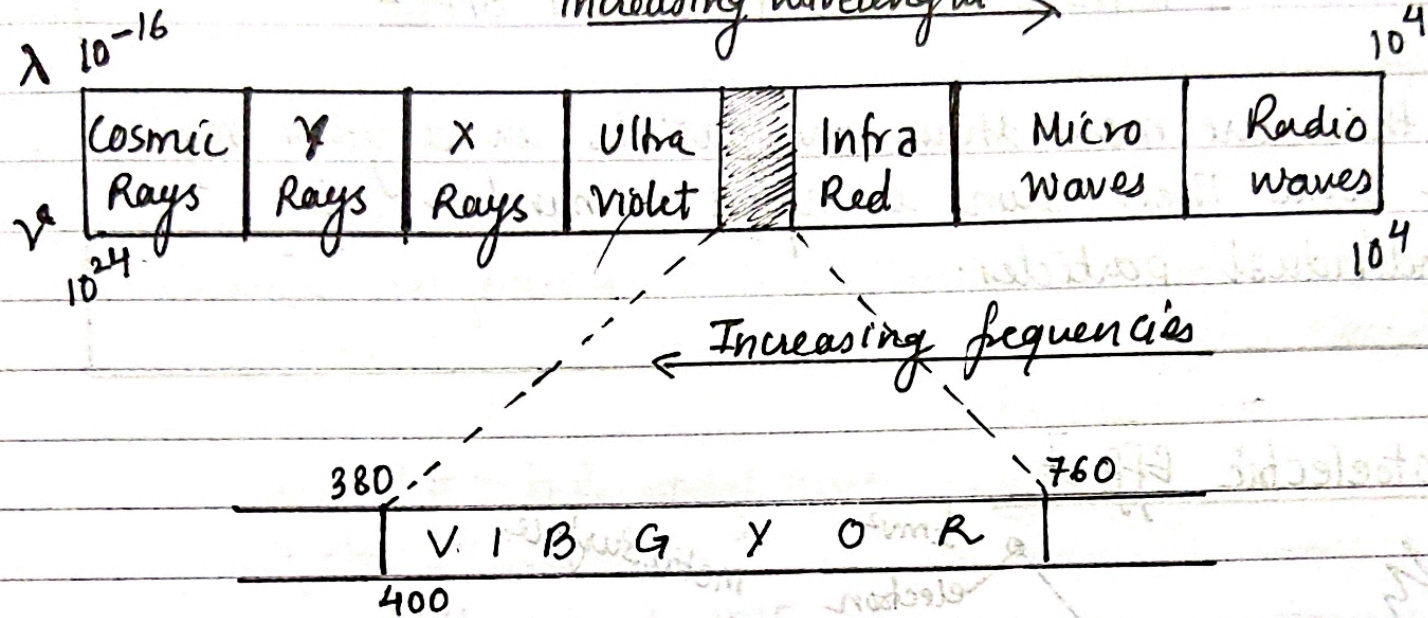 Increasing wavelength
λ 10⁻¹⁶ 10⁴
Cosmic Rays γ Rays X Rays Ultra violet Infra Red Micro waves Radio waves
ν 10²⁴ 10⁴
Increasing frequencies
380 760
V. I B G Y O R
400